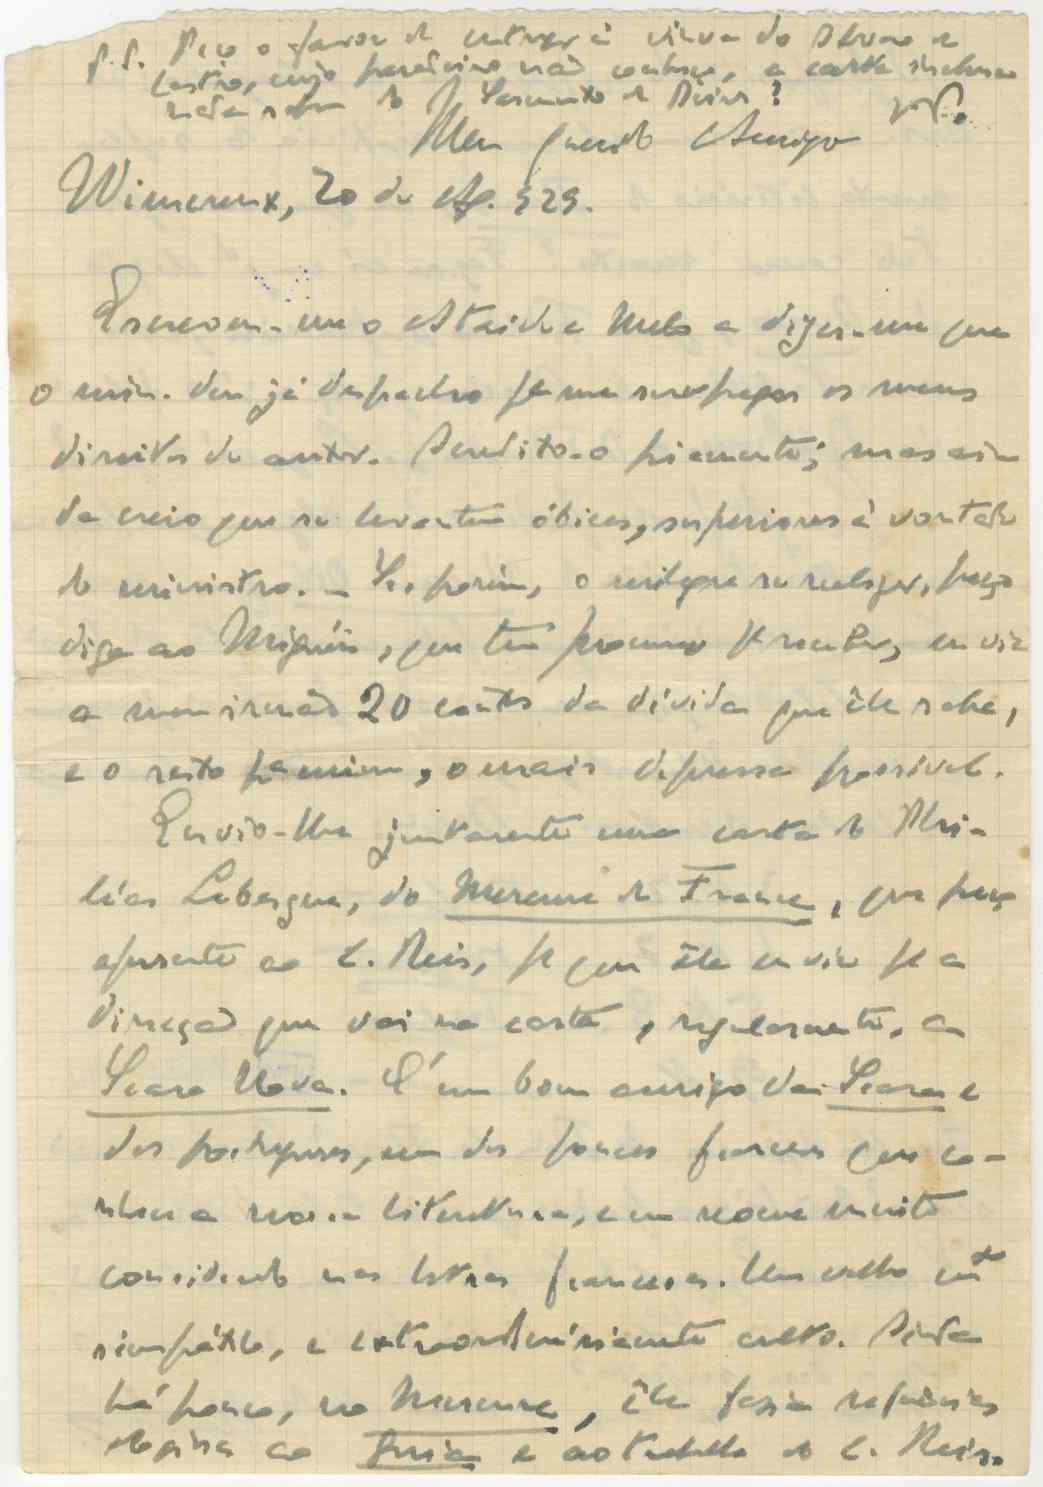 P.S. Peço o favor de entregar à viuva do Alvaro de
Castro, cujo paradeiro não conheço, a carta inclusa
nada sabe do Sarmento de Beires?
Meu querido Amigo
Wimereux, 20 de Ag. 929.
Escreveu-me o Ataíde e Melo a dizer-me que
o min. deu já despacho pa me serem pagos os meus
direitos de autor. Acredito-o piamente; mas ain-
da creio que se levantem óbices, superiores à vontade
do ministro. - Se, porém, o milagre se realizar, peço
diga ao Miguéis, que tem procuração pa receber, envie
a meu irmão 20 contos da dívida que êle sabe,
e o resto pa mim, o mais depressa possível.
Envio-lhe juntamente uma carta do Phi-
léas Lebesgue, do Mercure de France, que peço
apresente ao C. Reis, pa que êle envie pa a
direcção que vai na carta, regularmente, a
Seara Nova. É um bom amigo da Seara e
dos portugueses, um dos poucos franceses que co-
nhece a nossa literatura, e um nome muito
considerado nas letras francesas. Um velho mto
simpático, e extraordinàriamente culto. Ainda
há pouco, no Mercure, êle fazia referências
elogiosas ao Guia e ao trabalho do C. Reis.